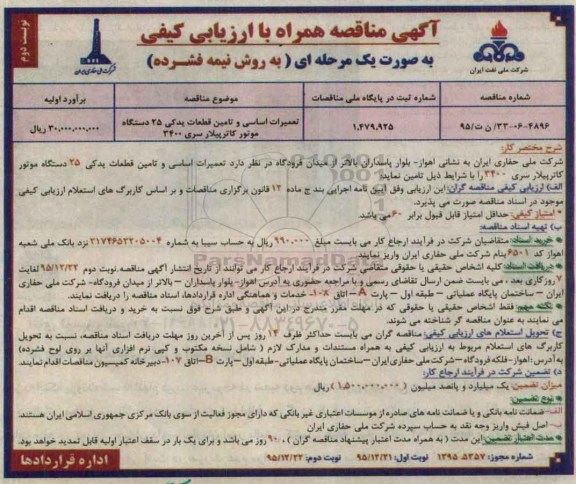 آگهی مناقصه همراه با ارزیابی کیفی
به صورت یک مرحله ای ( به روش نیمه فشرده)
نوبت دوم
شرکت ملی نفت ایران
شرکت ملی حفاری ایران
شماره مناقصه
شماره ثبت در پایگاه ملی مناقصات
موضوع مناقصه
برآورد اولیه
۳۳-۰۶-۴۸۹۶/ ن ت/۹۵
۱,۴۷۹,۹۲۵
تعمیرات اساسی و تامین قطعات یدکی ۲۵ دستگاه موتور کاترپیلار سری ۳۴۰۰
۳۰,۰۰۰,۰۰۰,۰۰۰ ریال
شرح مختصر کار:
شرکت ملی حفاری ایران به نشانی اهواز- بلوار پاسداران بالاتر از میدان فرودگاه در نظر دارد تعمیرات اساسی و تامین قطعات یدکی ۲۵ دستگاه موتور
کاترپیلار سری ۳۴۰۰ را با شرایط ذیل تامین نماید:
الف) ارزیابی کیفی مناقصه گران: این ارزیابی وفق آیین نامه اجرایی بند ج ماده ۱۲ قانون برگزاری مناقصات و بر اساس کاربرگ های استعلام ارزیابی کیفی
موجود در اسناد مناقصه صورت می پذیرد.
* امتیاز کیفی: حداقل امتیاز قابل قبول برابر ۶۰ می باشد.
ب) تهیه اسناد مناقصه:
* خرید اسناد: متقاضیان شرکت در فرآیند ارجاع کار می بایست مبلغ ۹۹۰.۰۰۰ ریال به حساب سیبا به شماره ۲۱۷۴۶۵۲۲۰۵۰۰۴ نزد بانک ملی شعبه
اهواز کد ۶۵۰۱ بنام شرکت ملی حفاری ایران واریز نمایند.
* دریافت اسناد: کلیه اشخاص حقیقی یا حقوقی متقاضی شرکت در فرآیند ارجاع کار می توانند از تاریخ انتشار آگهی مناقصه نوبت دوم ۹۵/۱۲/۲۲ لغایت
۷ روز کاری بعد ، می بایست ضمن ارسال تقاضای رسمی و با مراجعه حضوری به آدرس اهواز- بلوار پاسداران – بالاتر از میدان فرودگاه- شرکت ملی حفاری
ایران – ساختمان پایگاه عملیاتی – طبقه اول – پارت A – اتاق ۱۰۸- خدمات و هماهنگی اداره قراردادها، اسناد مناقصه را دریافت نمایند.
* نکته مهم: فقط اشخاص حقیقی یا حقوقی که در مهلت مقرر مندرج در این آگهی و طبق شرح فوق نسبت به خرید و دریافت اسناد مناقصه اقدام
می نمایند به عنوان مناقصه گر شناخته می شوند.
ج) تحویل استعلام های ارزیابی کیفی: مناقصه گران می بایست حداکثر ظرف ۱۴ روز پس از آخرین روز مهلت دریافت اسناد مناقصه، نسبت به تحویل
کاربرگ های استعلام مربوط به ارزیابی کیفی به همراه مستندات و مدارک لازم ( شامل نسخه مکتوب و کپی نرم افزاری آنها بر روی لوح فشرده)
به آدرس: اهواز- فلکه فرودگاه – شرکت ملی حفاری ایران – ساختمان پایگاه عملیاتی- طبقه اول – پارت B – اتاق ۱۰۷- دبیرخانه کمیسیون مناقصات اقدام نمایند.
د) تضمین شرکت در فرآیند ارجاع کار:
میزان تضمین: یک میلیارد و پانصد میلیون (۱,۵۰۰,۰۰۰,۰۰۰) ریال
* نوع تضمین:
الف- ضمانت نامه بانکی و یا ضمانت نامه های صادره از موسسات اعتباری غیر بانکی که دارای مجوز فعالیت از سوی بانک مرکزی جمهوری اسلامی ایران هستند.
ب- اصل فیش واریز وجه نقد به حساب سپرده شرکت ملی حفاری ایران
* مدت اعتبار تضمین: این مدت ( به همراه مدت اعتبار پیشنهاد مناقصه گران )، ۹۰ روز می باشد و برای یک بار در سقف اعتبار اولیه قابل تمدید خواهد بود.
شماره مجوز: ۱۳۹۵.۵۳۵۷ نوبت اول: ۹۵/۱۲/۲۱ نوبت دوم: ۹۵/۱۲/۲۲
اداره قراردادها
ParsNamadData